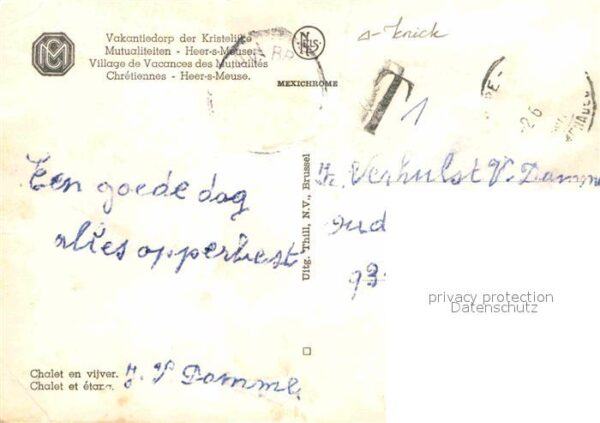 Vakantiedorp der Kristelijke
Mutualiteiten - Heer-s-Meuse.
Village de Vacances des Mutualités
Chrétiennes - Heer-s-Meuse.
NELS
MEXICHROME
a-knick
T 1
2.6
Een goede dag
alles opperbest
Uitg. Thill, N.V., Brussel
Verhulst V. Damme
oud
93
privacy protection
Datenschutz
Chalet en vijver.
Chalet et étang.
H. V Damme